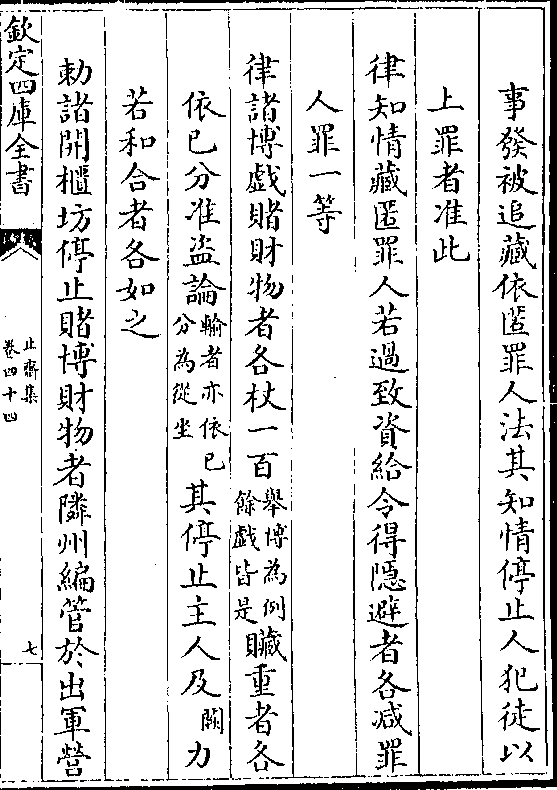 事發被追藏依匿罪人法其知情停止人犯徒以
上罪者准此
律知情藏匿罪人若過致資給令得隱避者各減罪
人罪一等
律諸博戲賭財物者各杖一百舉博為例餘戲皆是贓重者各
依已分准盗論輸者亦依已分為從坐其停止主人及闕力
若和合者各如之
勅諸開櫃坊停止賭博財物者隣州編管於出軍營
欽定四庫全書
止齋集
卷四十四
七